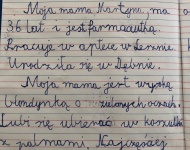 Moja mama Martyna, ma
36 lat i jest farmaceutką.
Pracuje w aptece w
Urodziła się w Dębnie.
Moja mama jest wysoką
blondynką o zielonych oczach.
Lubi się ubierać w koszulki
z palmami. Najczęściej